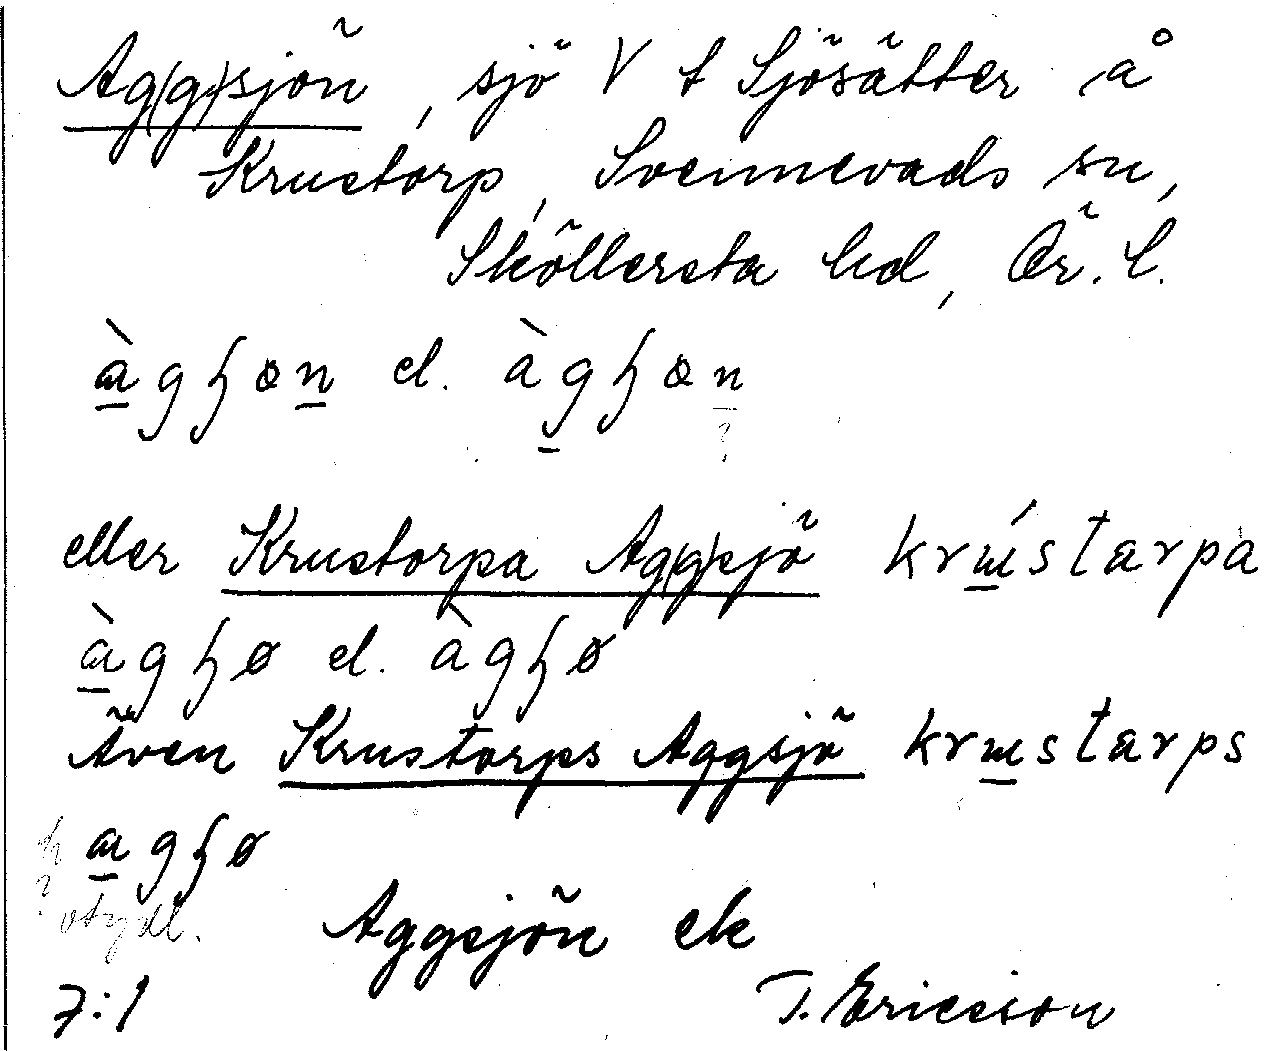 Ag(g)sjön, sjö V t Sjösätter å
Krustorp, Svennevads sn,
Sköllersta hd, Ör. l.
àgɧøn el. àgɧøn
?
eller Krustorpa Ag(g)sjö krɯ́starpa
àgɧø el. àgɧø
Även Krustorps Aggsjö krɯstarps
agɧø
? otydl.
Aggsjön ek
7:1 T. Ericsson